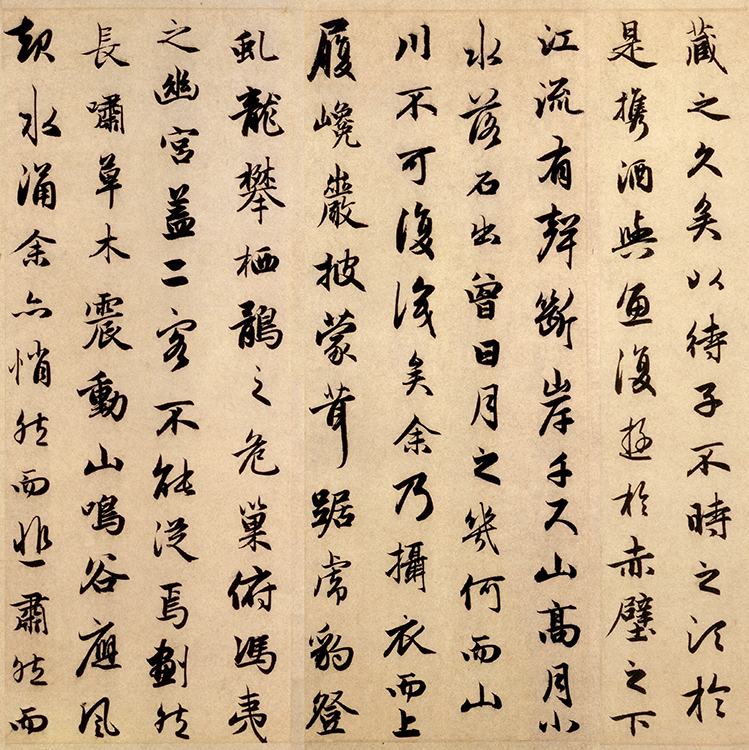 藏之久矣以待子不時之須於
是携酒與魚復遊於赤壁之下
江流有聲斷岸千尺山高月小
水落石出曾日月之幾何而山
川不可復識矣余乃攝衣而上
履巉巖披蒙茸踞虎豹登
虬龍攀栖鶻之危巢俯馮夷
之幽宮蓋二客不能從焉劃然
長嘯草木震動山鳴谷應風
起水涌余亦悄然而悲肅然而